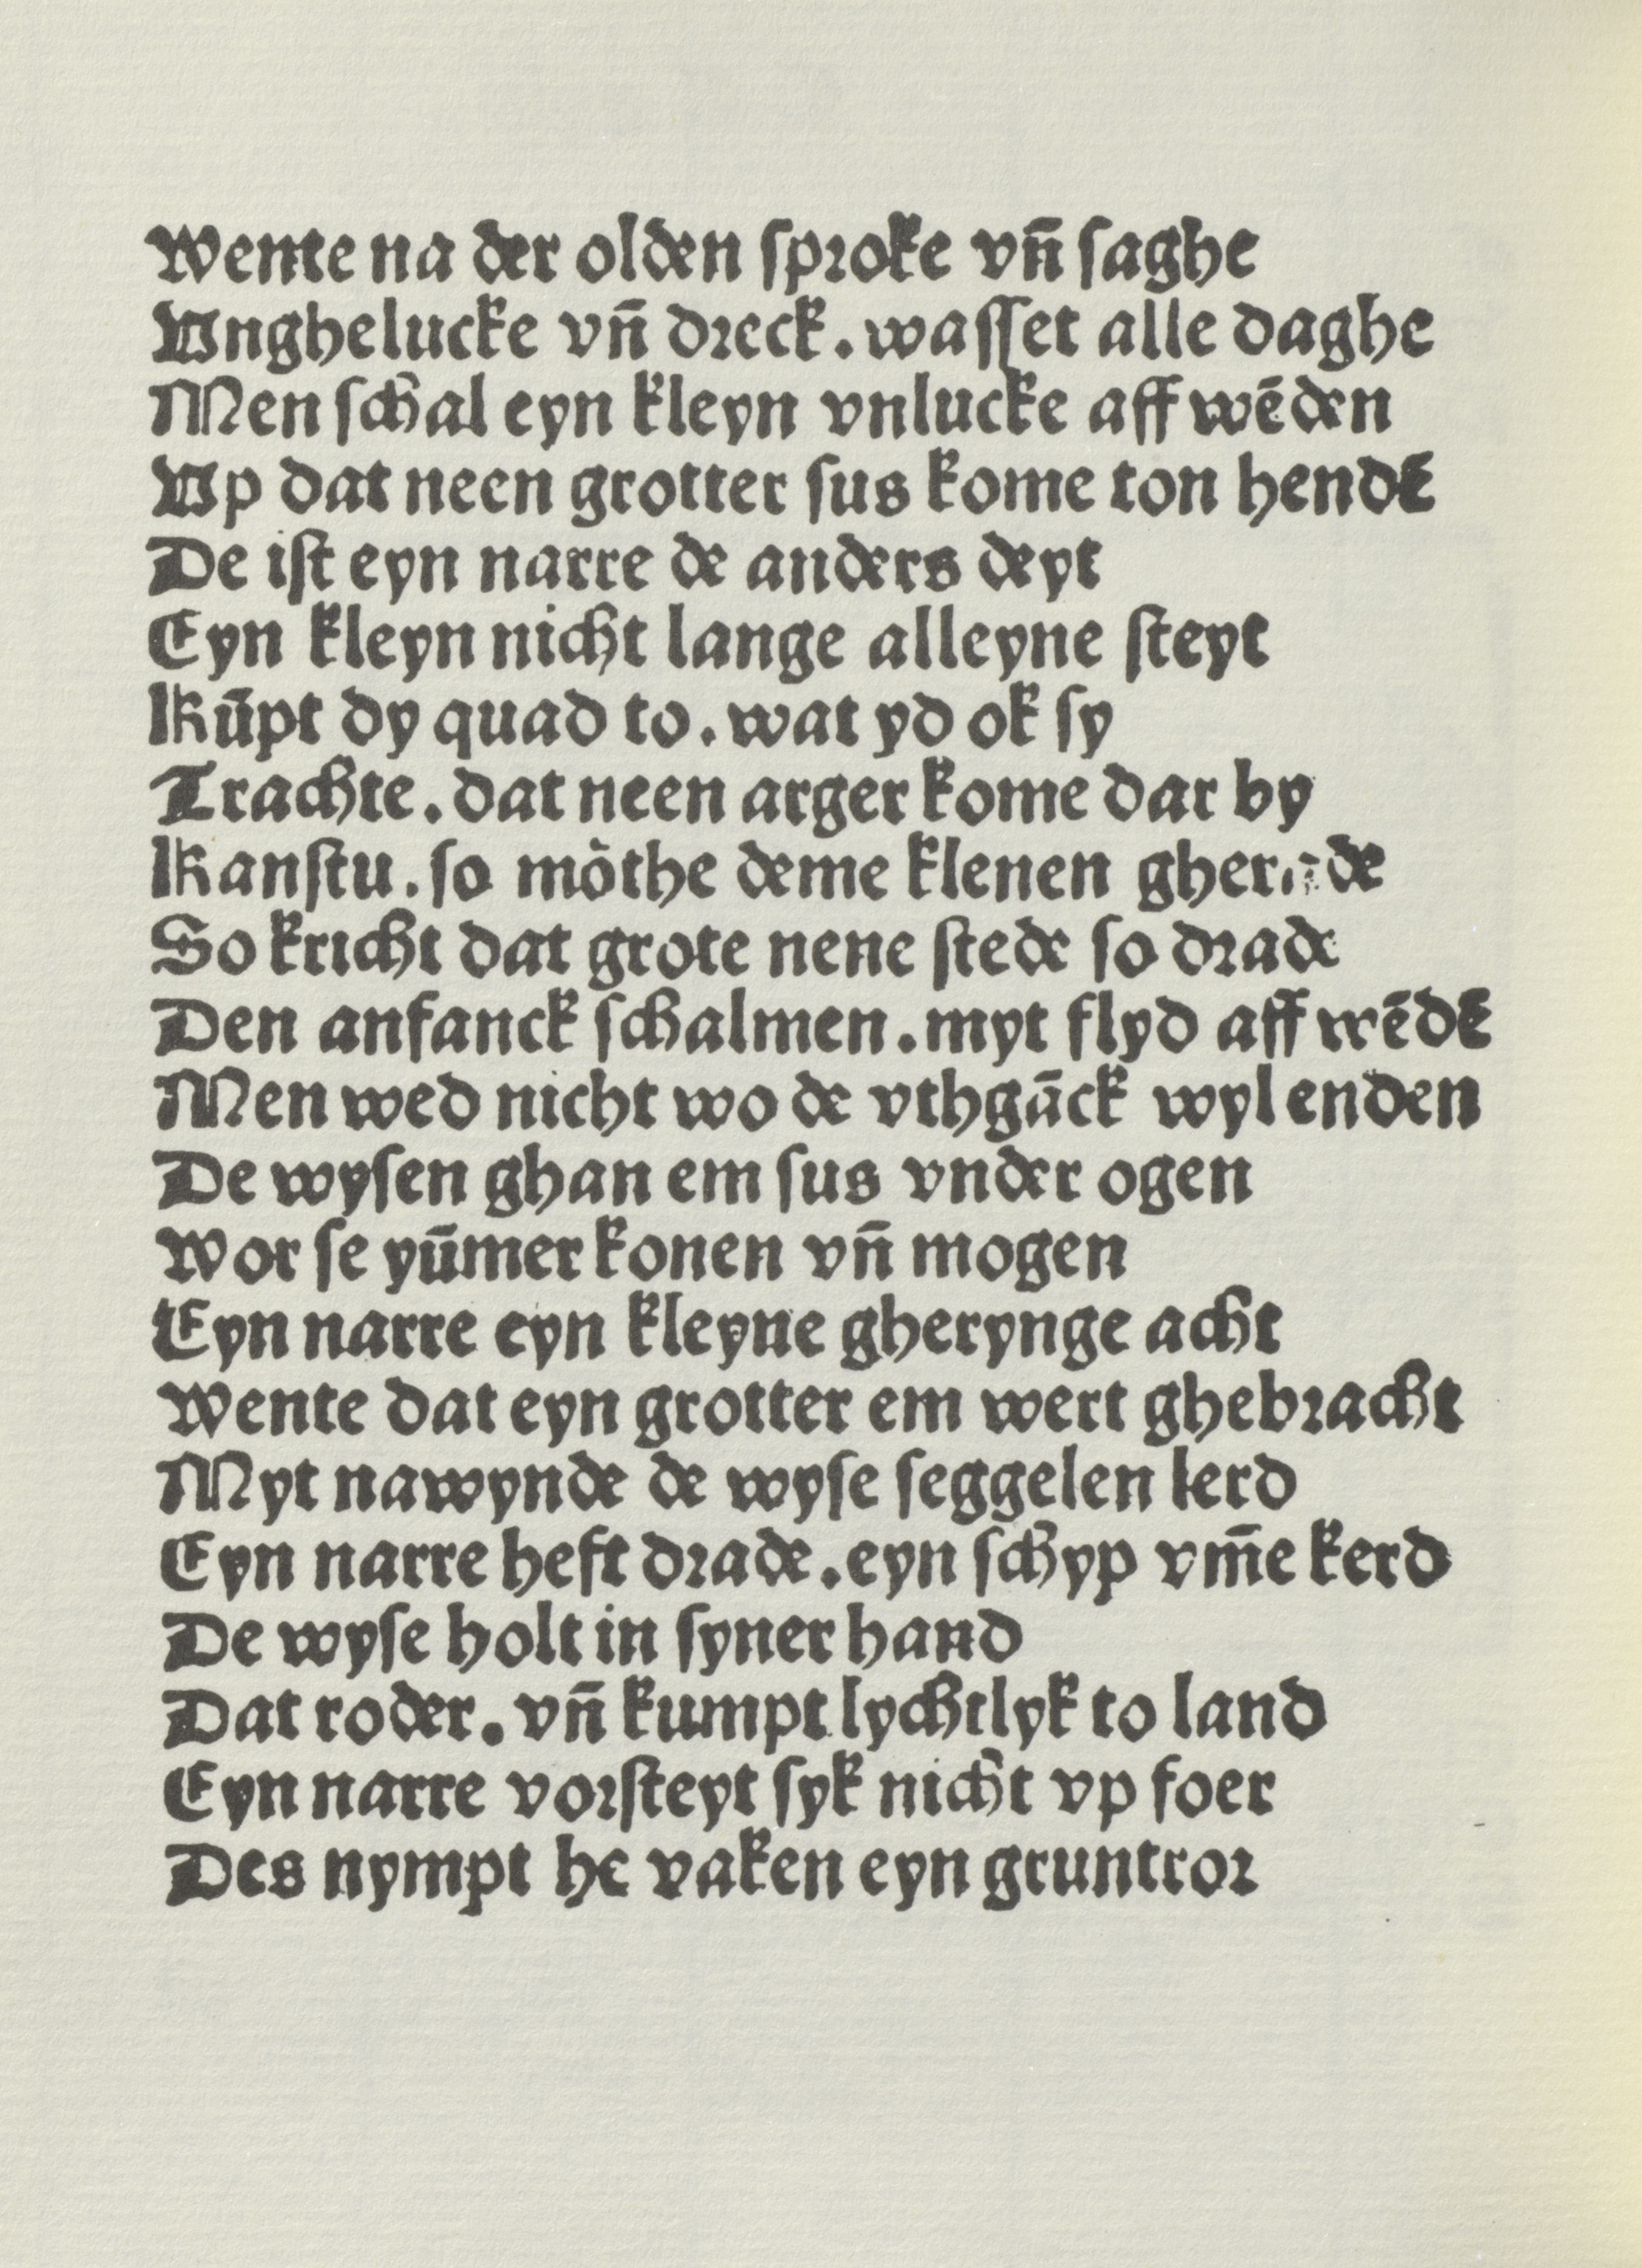 Wente na der olden sproke vn̄ saghe
Vnghelucke vn̄ dreck. wasset alle daghe
Men schal eyn kleyn vnlucke aff wēden
Vp dat neen grotter sus kome ton hendē
De ist eyn narre de anders deyt
Eyn kleyn nicht lange alleyne steyt
Kūpt dy quad to. wat yd ok sy
Trachte. dat neen arger kome dar by
Kanstu. so mȯthe deme klenen
So kricht dat grote nene stede so drade
Den anfanck schalmen. myt flyd aff wēdē
Men wed nicht wo de vthgāck wyl enden
De wysen ghan em sus vnder ogen
Wor se yūmer konen vn̄ mogen
Eyn narre eyn kleyne gherynge acht
Wente dat eyn grotter em wert ghebracht
Myt nawynde de wyse seggelen lerd
Eyn narre heft drade. eyn schyp vm̄e kerd
De wyse holt in syner hand
Dat roder. vn̄ kumpt lychtlyk to land
Eyn narre vorsteyt syk nicht vp foer
Des nympt he vaken eyn gruntror